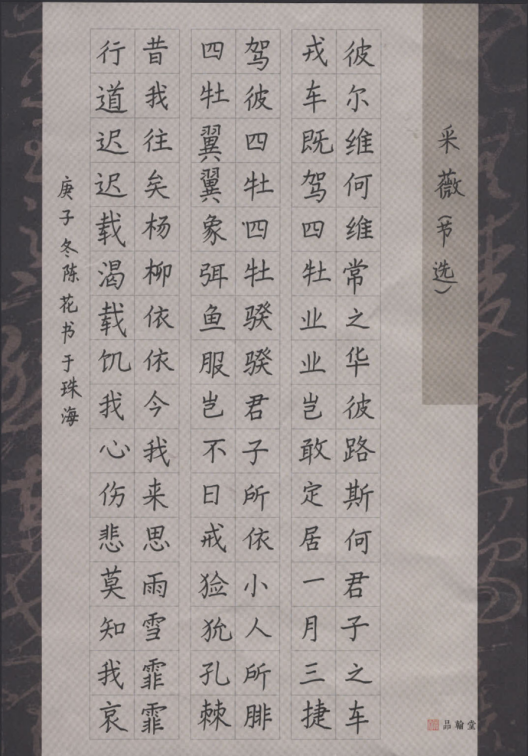 采薇(节选)
彼尔维何维常之华彼路斯何君子之车
戎车既驾四牡业业岂敢定居一月三捷
驾彼四牡四牡骙骙君子所依小人所腓
四牡翼翼象弭鱼服岂不日戒猃狁孔棘
昔我往矣杨柳依依今我来思雨雪霏霏
行道迟迟载渴载饥我心伤悲莫知我哀
庚子冬陈花书于珠海
品翰堂